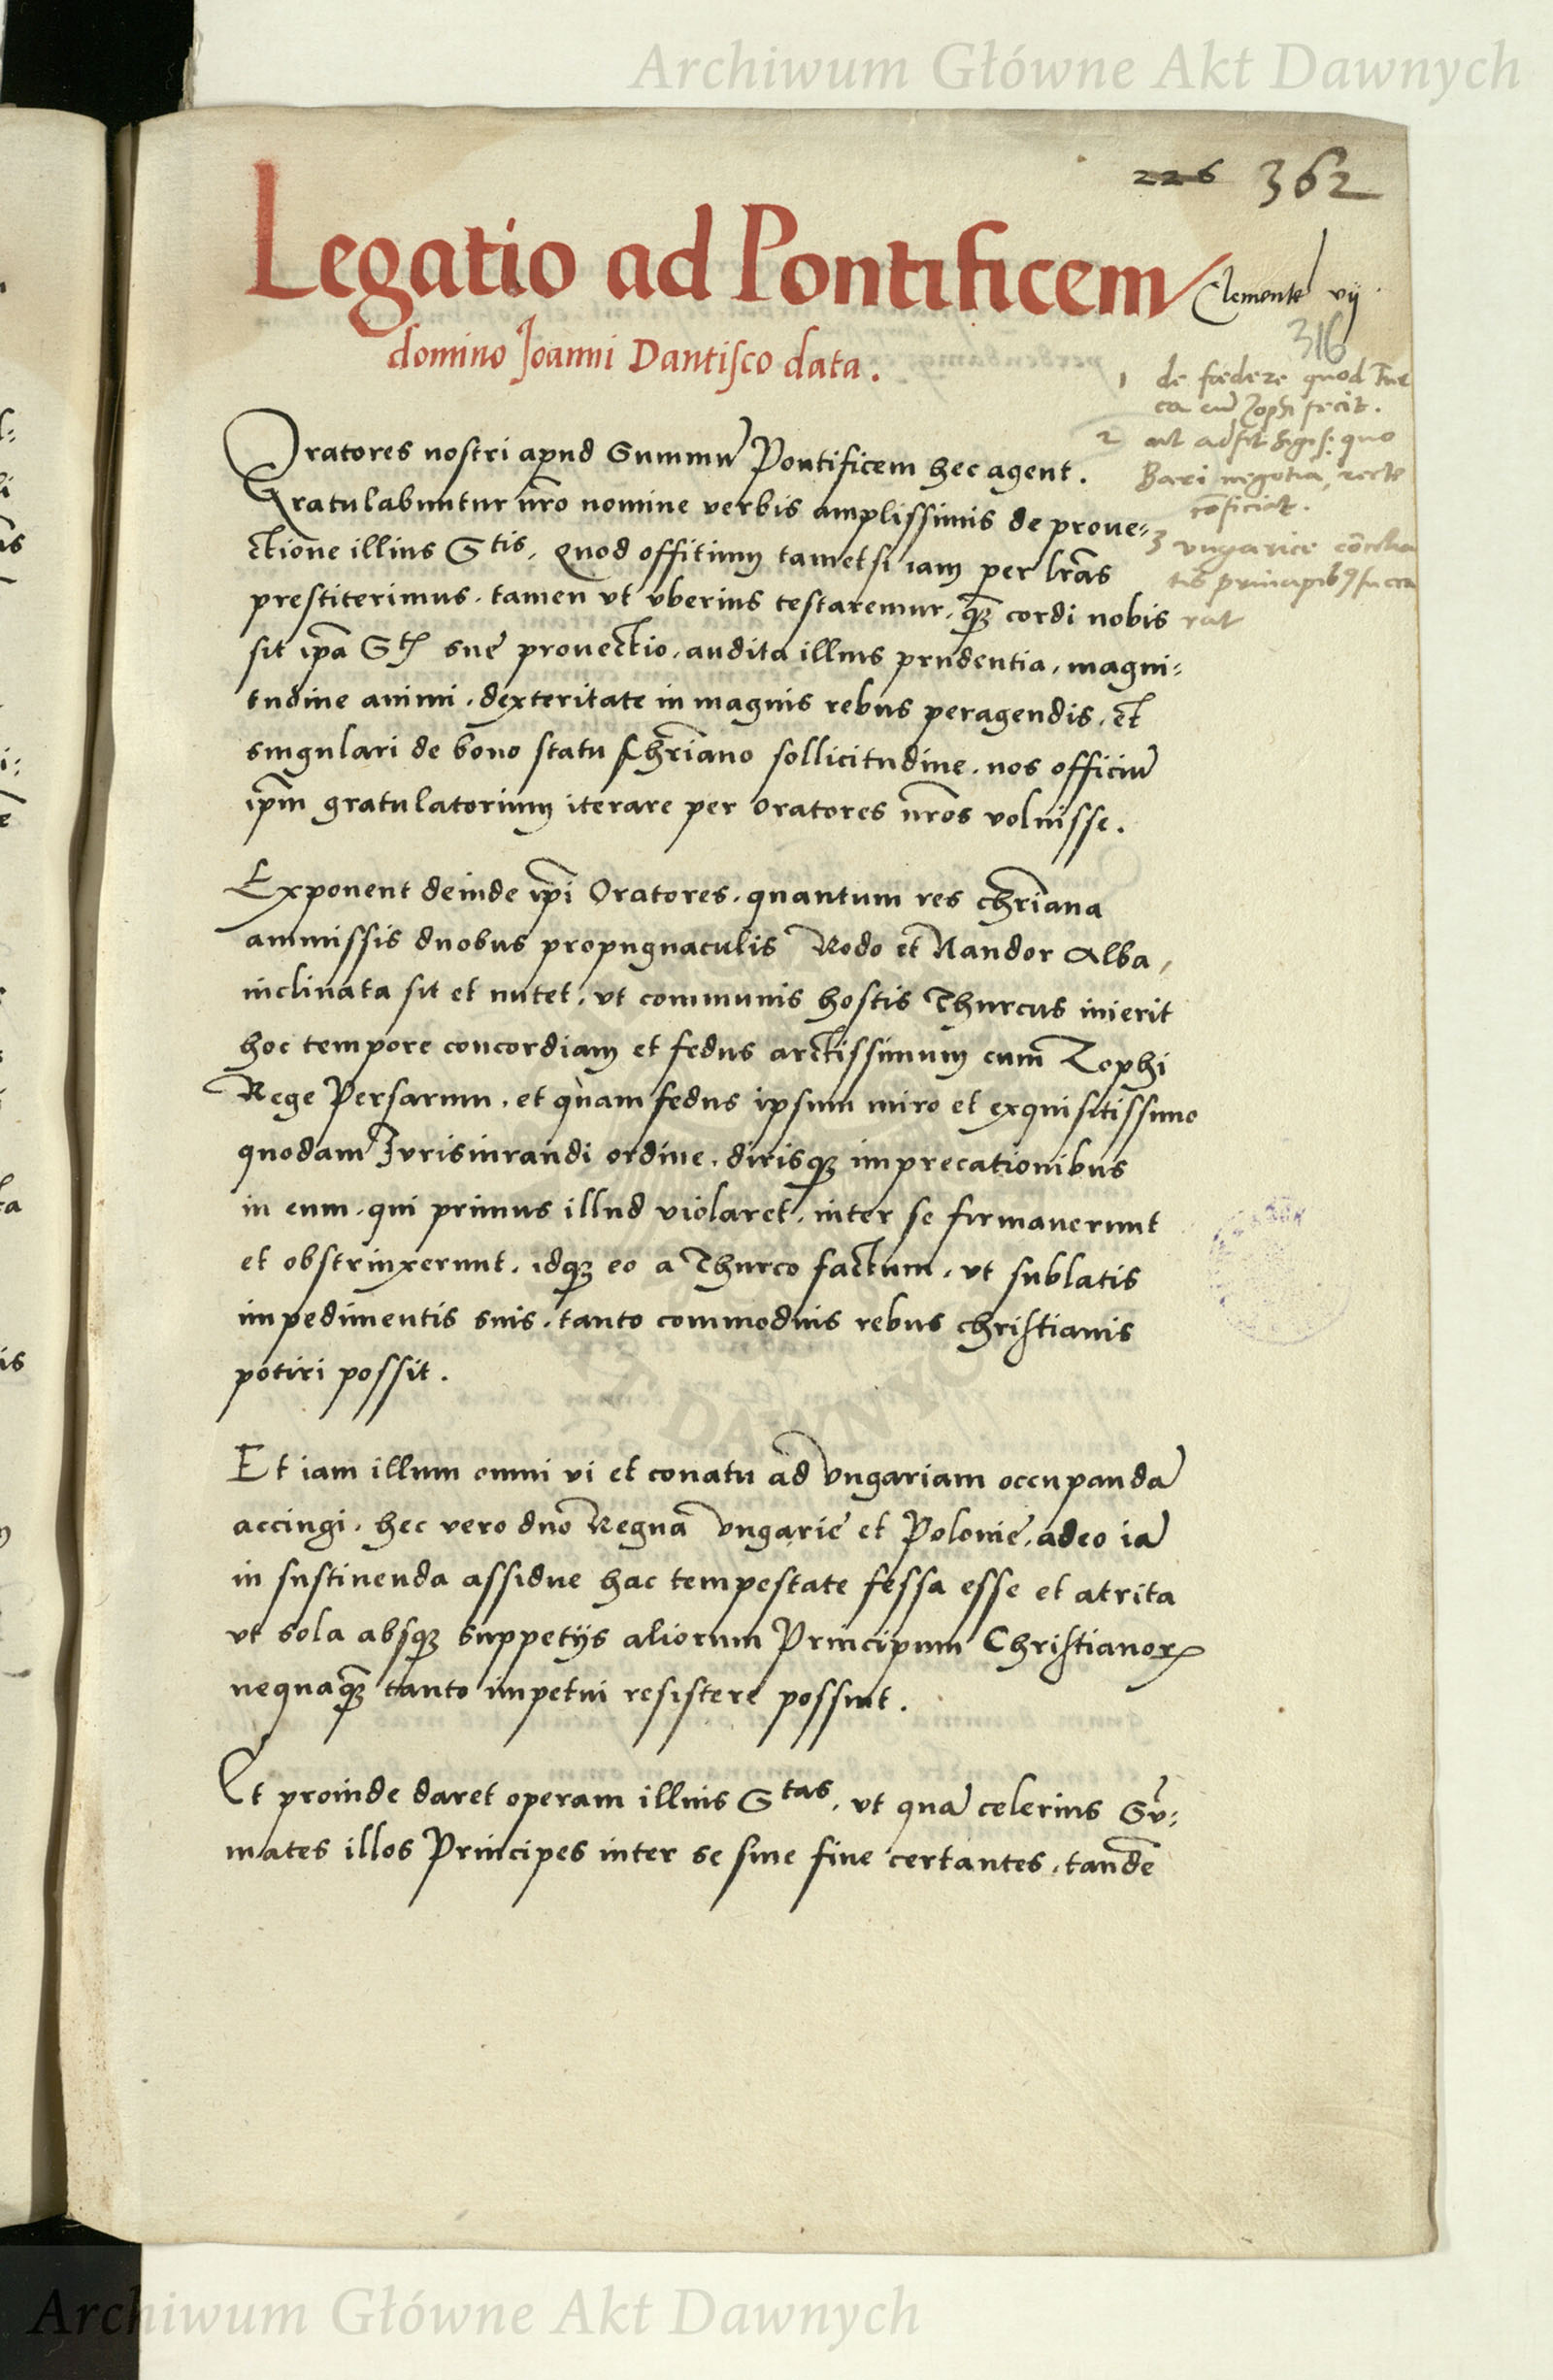 Archiwum Główne Akt Dawnych
226 362
Legatio ad Pontificem
Clementẽ vij
domino Joanni Dantisco data.
316
1 de fœdere quod Tur
ca cũ Zophi fecit.
2 ut adsit Sigis: quo
Bari negotia, recte
cõficiat.
3 vngarice
tis principibꝰ
rat
Oratores nostri apud Summũ Pontificem hec agent.
Gratulabuntur nr̃o nomine verbis amplissimis de proue-
ctione illius Stis, Quod offitium tametsi iam per lr̃as
prestiterimus, tamen vt vberius testaremur, qꝫ cordi nobis
sit ip̃a St. sue prouectio, audita illius prudentia, magni-
tudine animi, dexteritate in magnis rebus peragendis, et
singulari de bono statu chr̃iano sollicitudine, nos officiũ
ip̃m gratulatorium iterare per oratores nr̃os voluisse.
Exponent deinde ip̃i Oratores, quantum res chr̃iana
ammissis duobus propugnaculis Rodo et Nandor Alba,
inclinata sit et nutet, vt communis hostis Thurcus inierit
hoc tempore concordiam et fedus arctissimum cum Zophi
Rege Persarum, et quam fedus ipsum miro et exquisitissimo
quodam Jurisiurandi ordine, dirisqꝫ imprecationibus
in eum, qui primus illud violaret, inter se firmauerunt
et obstrinxerunt, idqꝫ eo a Thurco factum, vt sublatis
impedimentis suis, tanto commodius rebus christianis
potiri possit.
Et iam illum omni vi et conatu ad vngariam occupandã
accingi, hec vero duo Regna vngarie et Polonie, adeo iã
in sustinenda assidue hac tempestate fessa esse et atrita
vt sola absqꝫ suppetijs aliorum Principum Christianorꝝ
nequaqꝫ tanto impetui resistere possint.
Et proinde daret operam illius Stas, vt quã celerius Sũ-
mates illos Principes inter se sine fine certantes, tandẽ
DAWNYC
Archiwum Główne Akt Dawnych